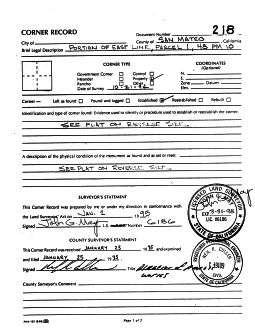 CORNER RECORD
Document Number 218
City of
County of SAN MATEO California
Brief Legal Description PORTION OF EAST LINE, PARCEL 1, 43 PM 10
CORNER TYPE
COORDINATES
(Optional)
Government Corner Control
Meander Property
Rancho Other
Date of Survey 10-21-94
N.
E.
Zone Datum
Elev.
Corner — Left as found Found and tagged Established Reestablished Rebuilt
Identification and type of corner found: Evidence used to identify or procedure used to establish or reestablish the corner:
SEE PLAT ON REVERSE SIDE.
A description of the physical condition of the monument as found and as set or reset:
SEE PLAT ON REVERSE SIDE.
SURVEYOR'S STATEMENT
This Corner Record was prepared by me or under my direction in conformance with
the Land Surveyors' Act on JAN. 1 1995
Signed John G. May L.S. Number 6186
COUNTY SURVEYOR'S STATEMENT
This Corner Record was received JANUARY 23 1995 and examined
and filed JANUARY 25 1995
Signed Title Director of
WORKS
County Surveyor's Comment
Page 1 of 2